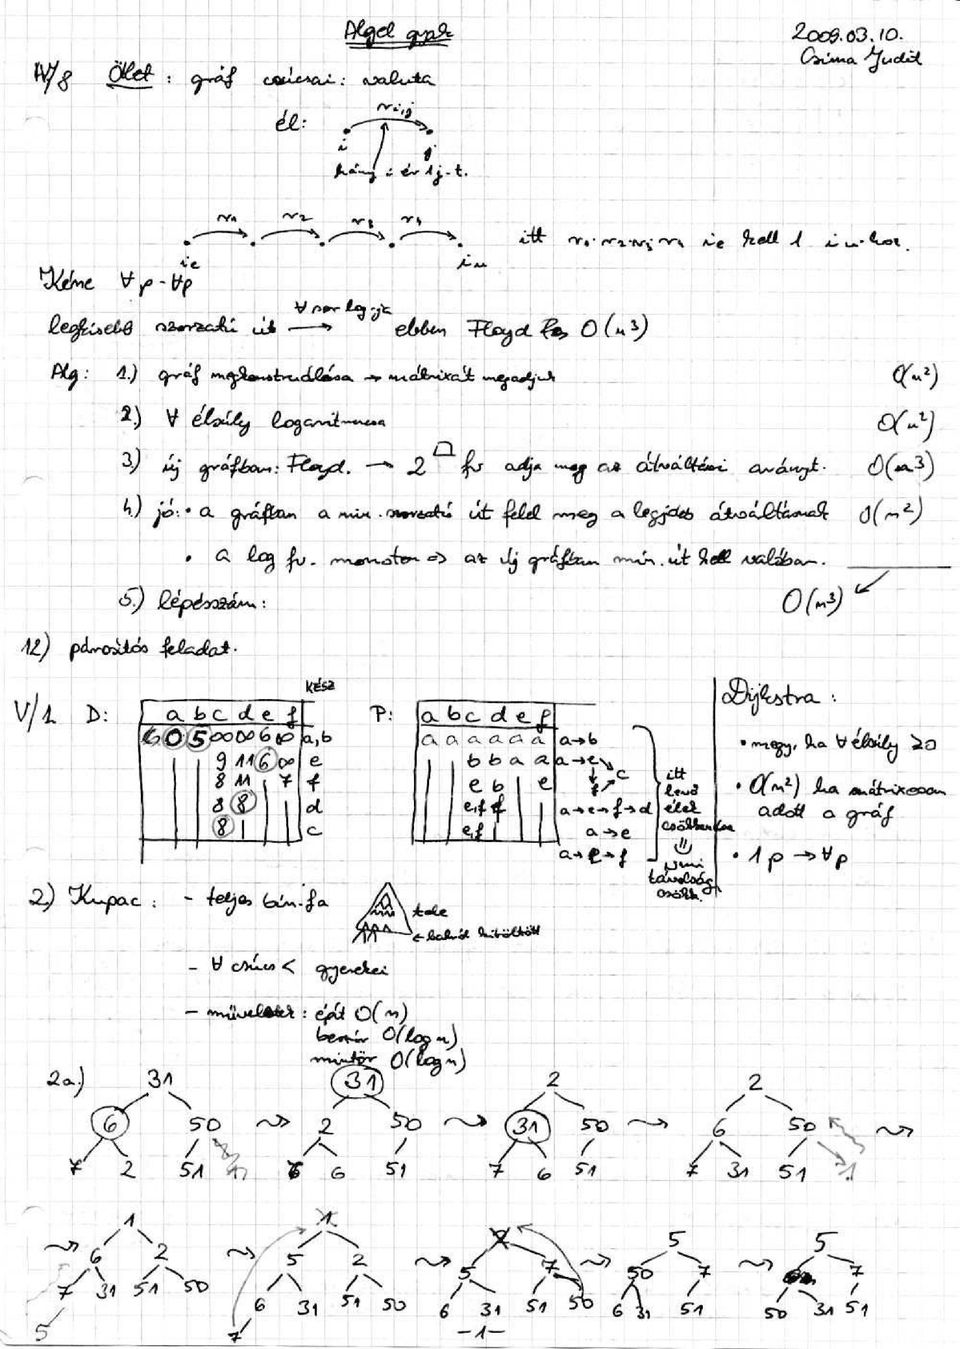 Algel gyak
2009.03.10.
Csima Judit
IV/8 Ötlet: gráf csúcsai: valuta
él:
r i,j
i
j
hány i ér 1 j-t.
r1 r2 r3 r4
itt r1·r2·r3·r4 ie kell 1 in-hez.
Kéne ∀p-∀p
legkisebb szorzatú út → ebben Floyd O(n³)
Alg: 1.) gráf megkonstruálása → mátrixát megadjuk O(n²)
2.) ∀ élsúly logaritmusa O(n²)
3.) új gráfban: Floyd. → 2 fv adja meg az átváltási arányt. O(n³)
4.) jó: • a gráfban a min. szorzatú út felel meg a legjobb átváltásnak O(n²)
• a log fv. monoton => az új gráfban min. út kell valóban.
5.) lépésszám: O(n³)
12) párosítós feladat.
V/1. D:
KÉSZ
a b c d e f
0 5 ∞ ∞ 6 ∞ a,b
9 11 6 ∞ e
8 11 7 f
8 8 d
8 c
P:
a b c d e f
a a a a a a a→b
b b a a a→e
e b e
e,f f a→e→f→d
e,f a→e
a→e→f
itt
levő
élek
Dijkstra:
• megy, ha ∀ élsúly ≥0
• O(n²) ha mátrixosan
adott a gráf
• 1p → ∀p
2.) Kupac: - teljes bin.fa
tele
← balról kitöltött
- ∀ csúcs < gyerekei
- műveletek: épít O(n)
beszúr O(log n)
mintör O(log n)
2a.) 31
6 50
7 2 51
31
2 50
6 51
2
31 50
7 6 51
2
6 50
7 31 51 1
1
6 2
7 31 51 50
5
1
5 2
6 31 51 50
7
2
5 7
6 31 51 50
5
50 7
6 31 51
5
7
50 31 51
-1-